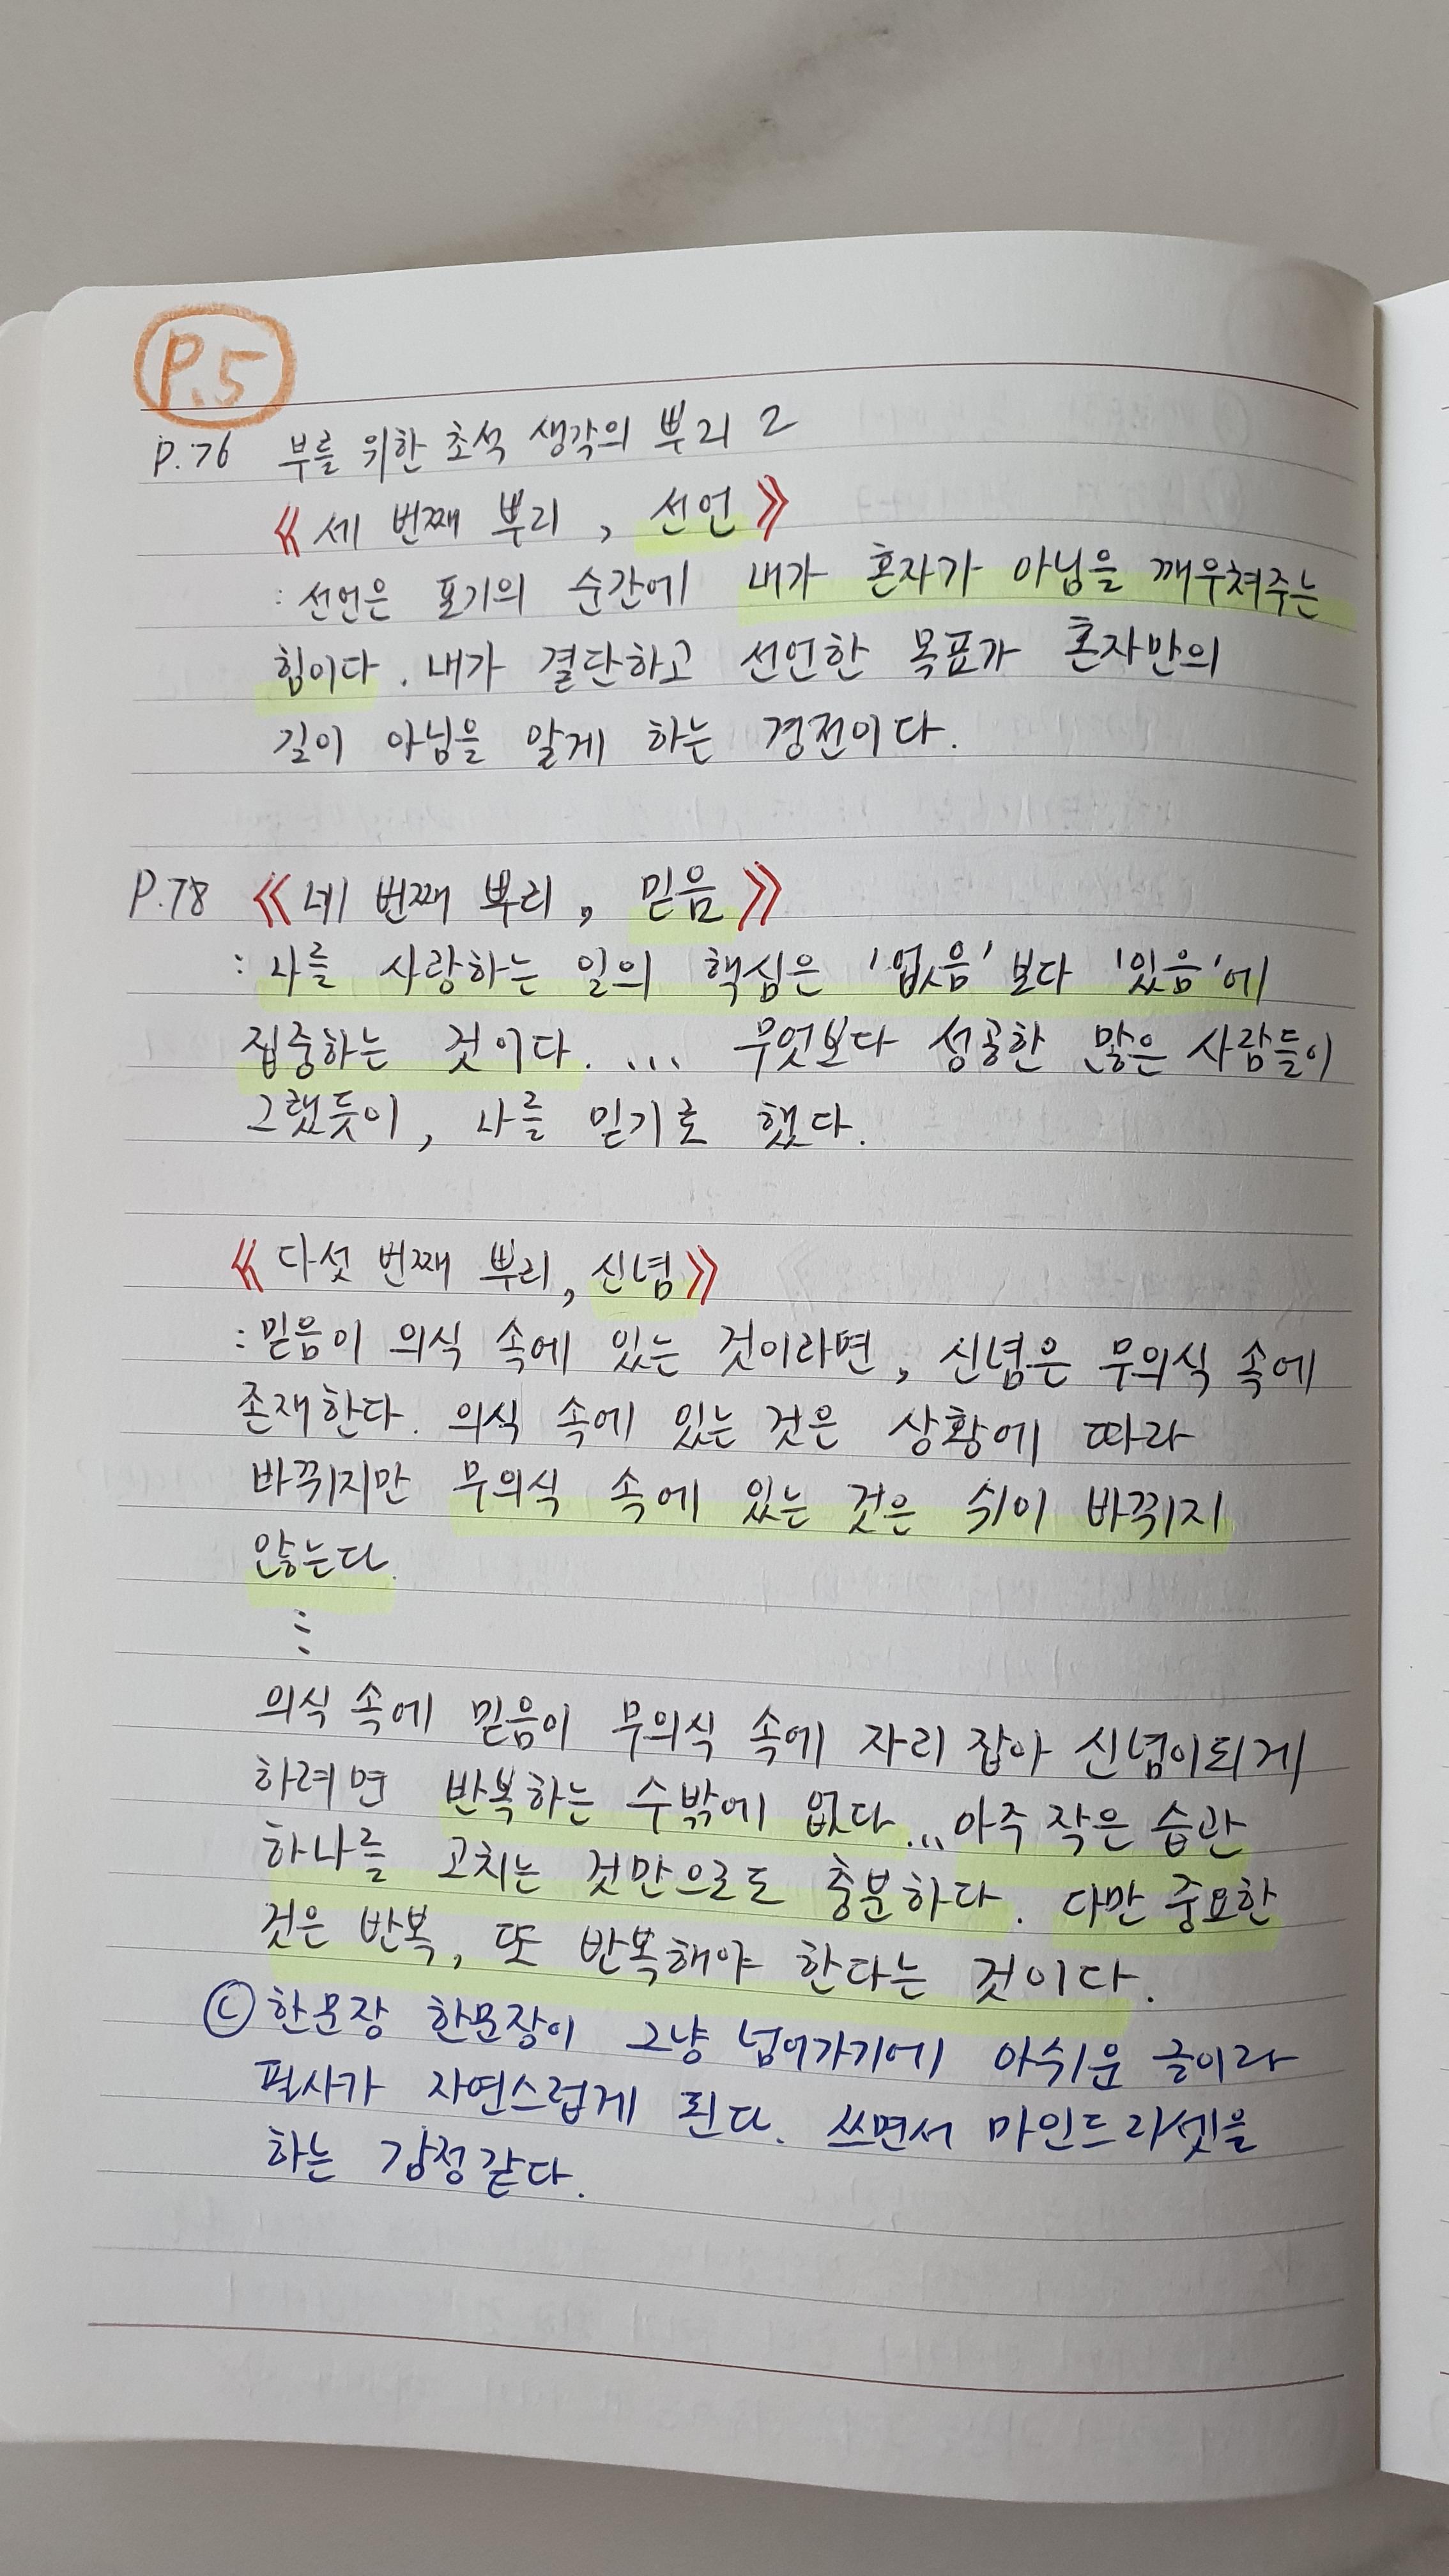 P.5
P.76 부를 위한 초석 생각의 뿌리 2
《세 번째 뿌리, 선언》
: 선언은 포기의 순간에 내가 혼자가 아님을 깨우쳐주는
힘이다. 내가 결단하고 선언한 목표가 혼자만의
길이 아님을 알게 하는 경전이다.
P.78 《네 번째 뿌리, 믿음》
: 나를 사랑하는 일의 핵심은 '없음'보다 '있음'에
집중하는 것이다. ... 무엇보다 성공한 많은 사람들이
그랬듯이, 나를 믿기로 했다.
《다섯 번째 뿌리, 신념》
: 믿음이 의식 속에 있는 것이라면, 신념은 무의식 속에
존재한다. 의식 속에 있는 것은 상황에 따라
바뀌지만 무의식 속에 있는 것은 쉬이 바뀌지
않는다.
⋮
의식 속에 믿음이 무의식 속에 자리 잡아 신념이되게
하려면 반복하는 수밖에 없다... 아주 작은 습관
하나를 고치는 것만으로도 충분하다. 다만 중요한
것은 반복, 또 반복해야 한다는 것이다.
ⓒ 한문장 한문장이 그냥 넘어가기에 아쉬운 글이라
필사가 자연스럽게 된다. 쓰면서 마인드리셋을
하는 감정같다.